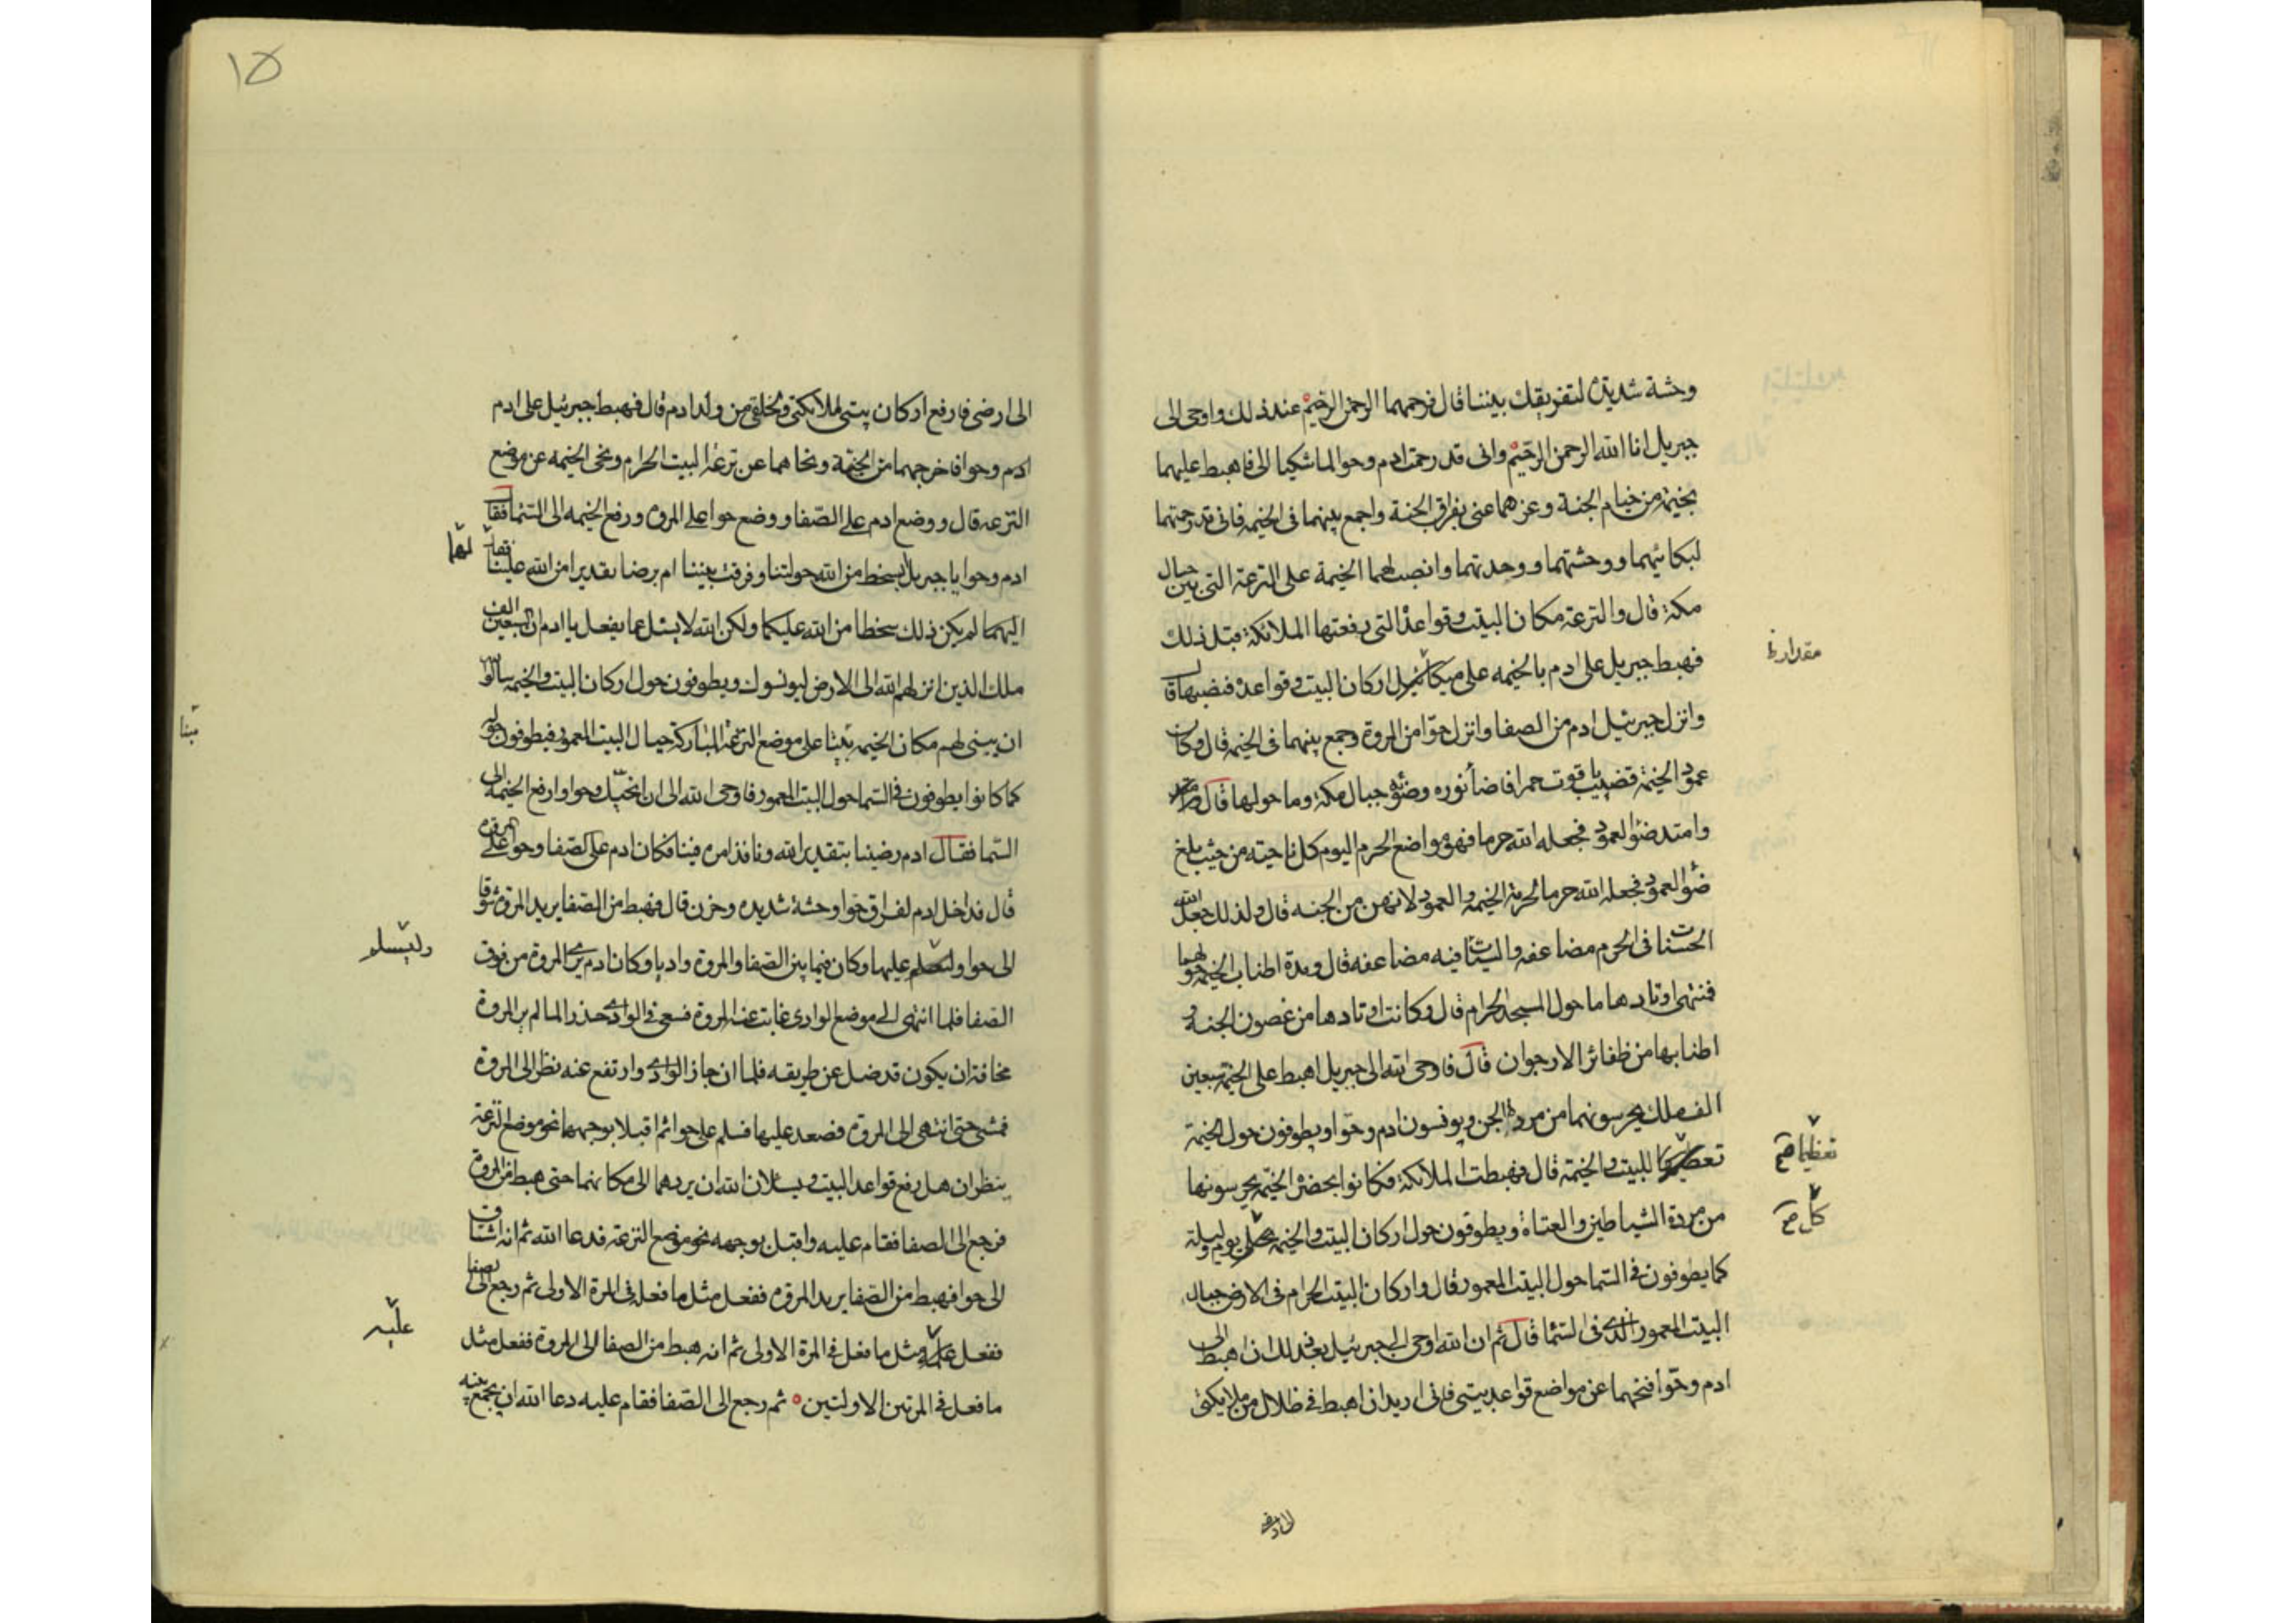 وحشة شديدة لتفريقك بيننا قال فرحمهما الرحمن الرحيم عند ذلك واوحى الى
جبريل انا الله الرحمن الرحيم وانى قد رحمت ادم وحوا لما شكيا الى فاهبط عليهما
بخيمة من خيام الجنة وعزهما عنى بفراق الجنة واجمع بينهما فى الخيمه فانى قد رحمتهما
لبكائهما ووحشتهما ووحدتهما وانصب لهما الخيمة على الترعة التى بين جبال
مكة قال والترعة مكان البيت وقواعده التى رفعتها الملائكة قبل ذلك
فهبط جبريل على ادم بالخيمه على اركان البيت وقواعده فنصبها قال
وانزل جبرئيل ادم من الصفا وانزل حوا من المروة وجمع بينهما فى الخيمه قال وكان
عمود الخيمة قضيب ياقوت حمرا فاضأ نوره وضؤه جبال مكة وما حولها قال
وامتد ضؤ العمود فجعله الله حرما فهو مواضع الحرم اليوم كل ناحيته من حيث بلغ
ضؤ العمود فجعله الله حرما لحرمة الخيمه والعمود لانهن من الجنه قال ولذلك جعل الله
الحسنات فى الحرم مضاعفه والسيئات فيه مضاعفه قال ومدة اطناب الخيمه حولهما
فمنتهى اوتادها ما حول المسجد الحرام قال وكانت اوتادها من غصون الجنه و
اطنابها من ظفائر الارجوان قال فاوحى الله الى جبريل اهبط على الخيمه سبعين
الف ملك يحرسونهما من مردة الجن ويونسون ادم وحوا ويطوفون حول الخيمة
تعظيما للبيت والخيمة قال فهبطت الملائكة فكانوا بحضرة الخيمه يحرسونها
من مردة الشياطين والعتاة ويطوفون حول اركان البيت والخيمه كل يوم وليلة
كما يطوفون فى السما حول البيت المعمور قال واركان البيت الحرام فى الارض حيال
البيت المعمور الذى فى السما قال ثم ان الله اوحى الى جبرئيل بعد ذلك ان اهبط الى
ادم وحوا فنحهما عن مواضع قواعد بيتى فانى اريد ان اهبط فى ظلال من ملايكتى
تعظيما صح
كل صح
الى ارضى
١٥
الى ارضى فارفع اركان بيتى لملائكتى ولخلقى من ولد ادم قال فهبط جبرئيل على ادم
ادم وحوا فاخرجهما من الخيمة ونحاهما عن ترعة البيت الحرام ونحى الخيمه عن موضع
الترعه قال ووضع ادم على الصفا ووضع حوا على المروه ورفع الخيمه الى السما فقال
ادم وحوا يا جبريل ابسخط من الله حولتنا وفرقت بيننا ام برضا تقديرا من الله علينا فقال
اليهما لم يكن ذلك سخطا من الله عليكما ولكن الله لا يسئل عما يفعل يا ادم ان السبعين الف
ملك الذين انزلهم الله الى الارض ليونسوك ويطوفون حول اركان البيت والخيمه سالوا
ان يبنى لهم مكان الخيمه بيتا على موضع الترعة المباركة حيال البيت المعمور فيطوفون حوله
كما كانوا يطوفون فى السما حول البيت المعمور فاوحى الله الى ان انحيك وحوا وارفع الخيمه الى
السما فقال ادم رضينا بتقدير الله ونافذ امره فينا فكان ادم على الصفا وحوا على المروه
قال فداخل ادم لفراق حوا وحشة شديده وحزن قال فهبط من الصفا يريد المروة شوقا
الى حوا وليسلم عليها وكان فيما بين الصفا والمروة واديا وكان ادم يرى المروة من فوق
الصفا فلما انتهى الى موضع الوادى غابت عنه المروة فسعى فى الوادى حذرا لما لم ير المروة
مخافة ان يكون قد ضل عن طريقه فلما ان جاز الوادى وارتفع عنه نظر الى المروة
فمشى حتى انتهى الى المروه فصعد عليها فسلم على حوا ثم اقبلا بوجههما نحو موضع الترعة
ينظران هل رفع قواعد البيت ويسئلان الله ان يردهما الى مكانهما حتى هبط من المروة
فرجع الى الصفا فقام عليه واقبل بوجهه نحو موضع الترعة فدعا الله ثم انه اشتاق
الى حوا فهبط من الصفا يريد المروه ففعل مثل ما فعل فى المرة الاولى ثم رجع الى الصفا
ففعل عليه مثل ما فعل فى المرة الاولى ثم انه هبط من الصفا الى المروة ففعل مثل
ما فعل فى المرتين الاولتين ثم رجع الى الصفا فقام عليه دعا الله ان يجمع بينه
بيتا
وليسلم
عليه